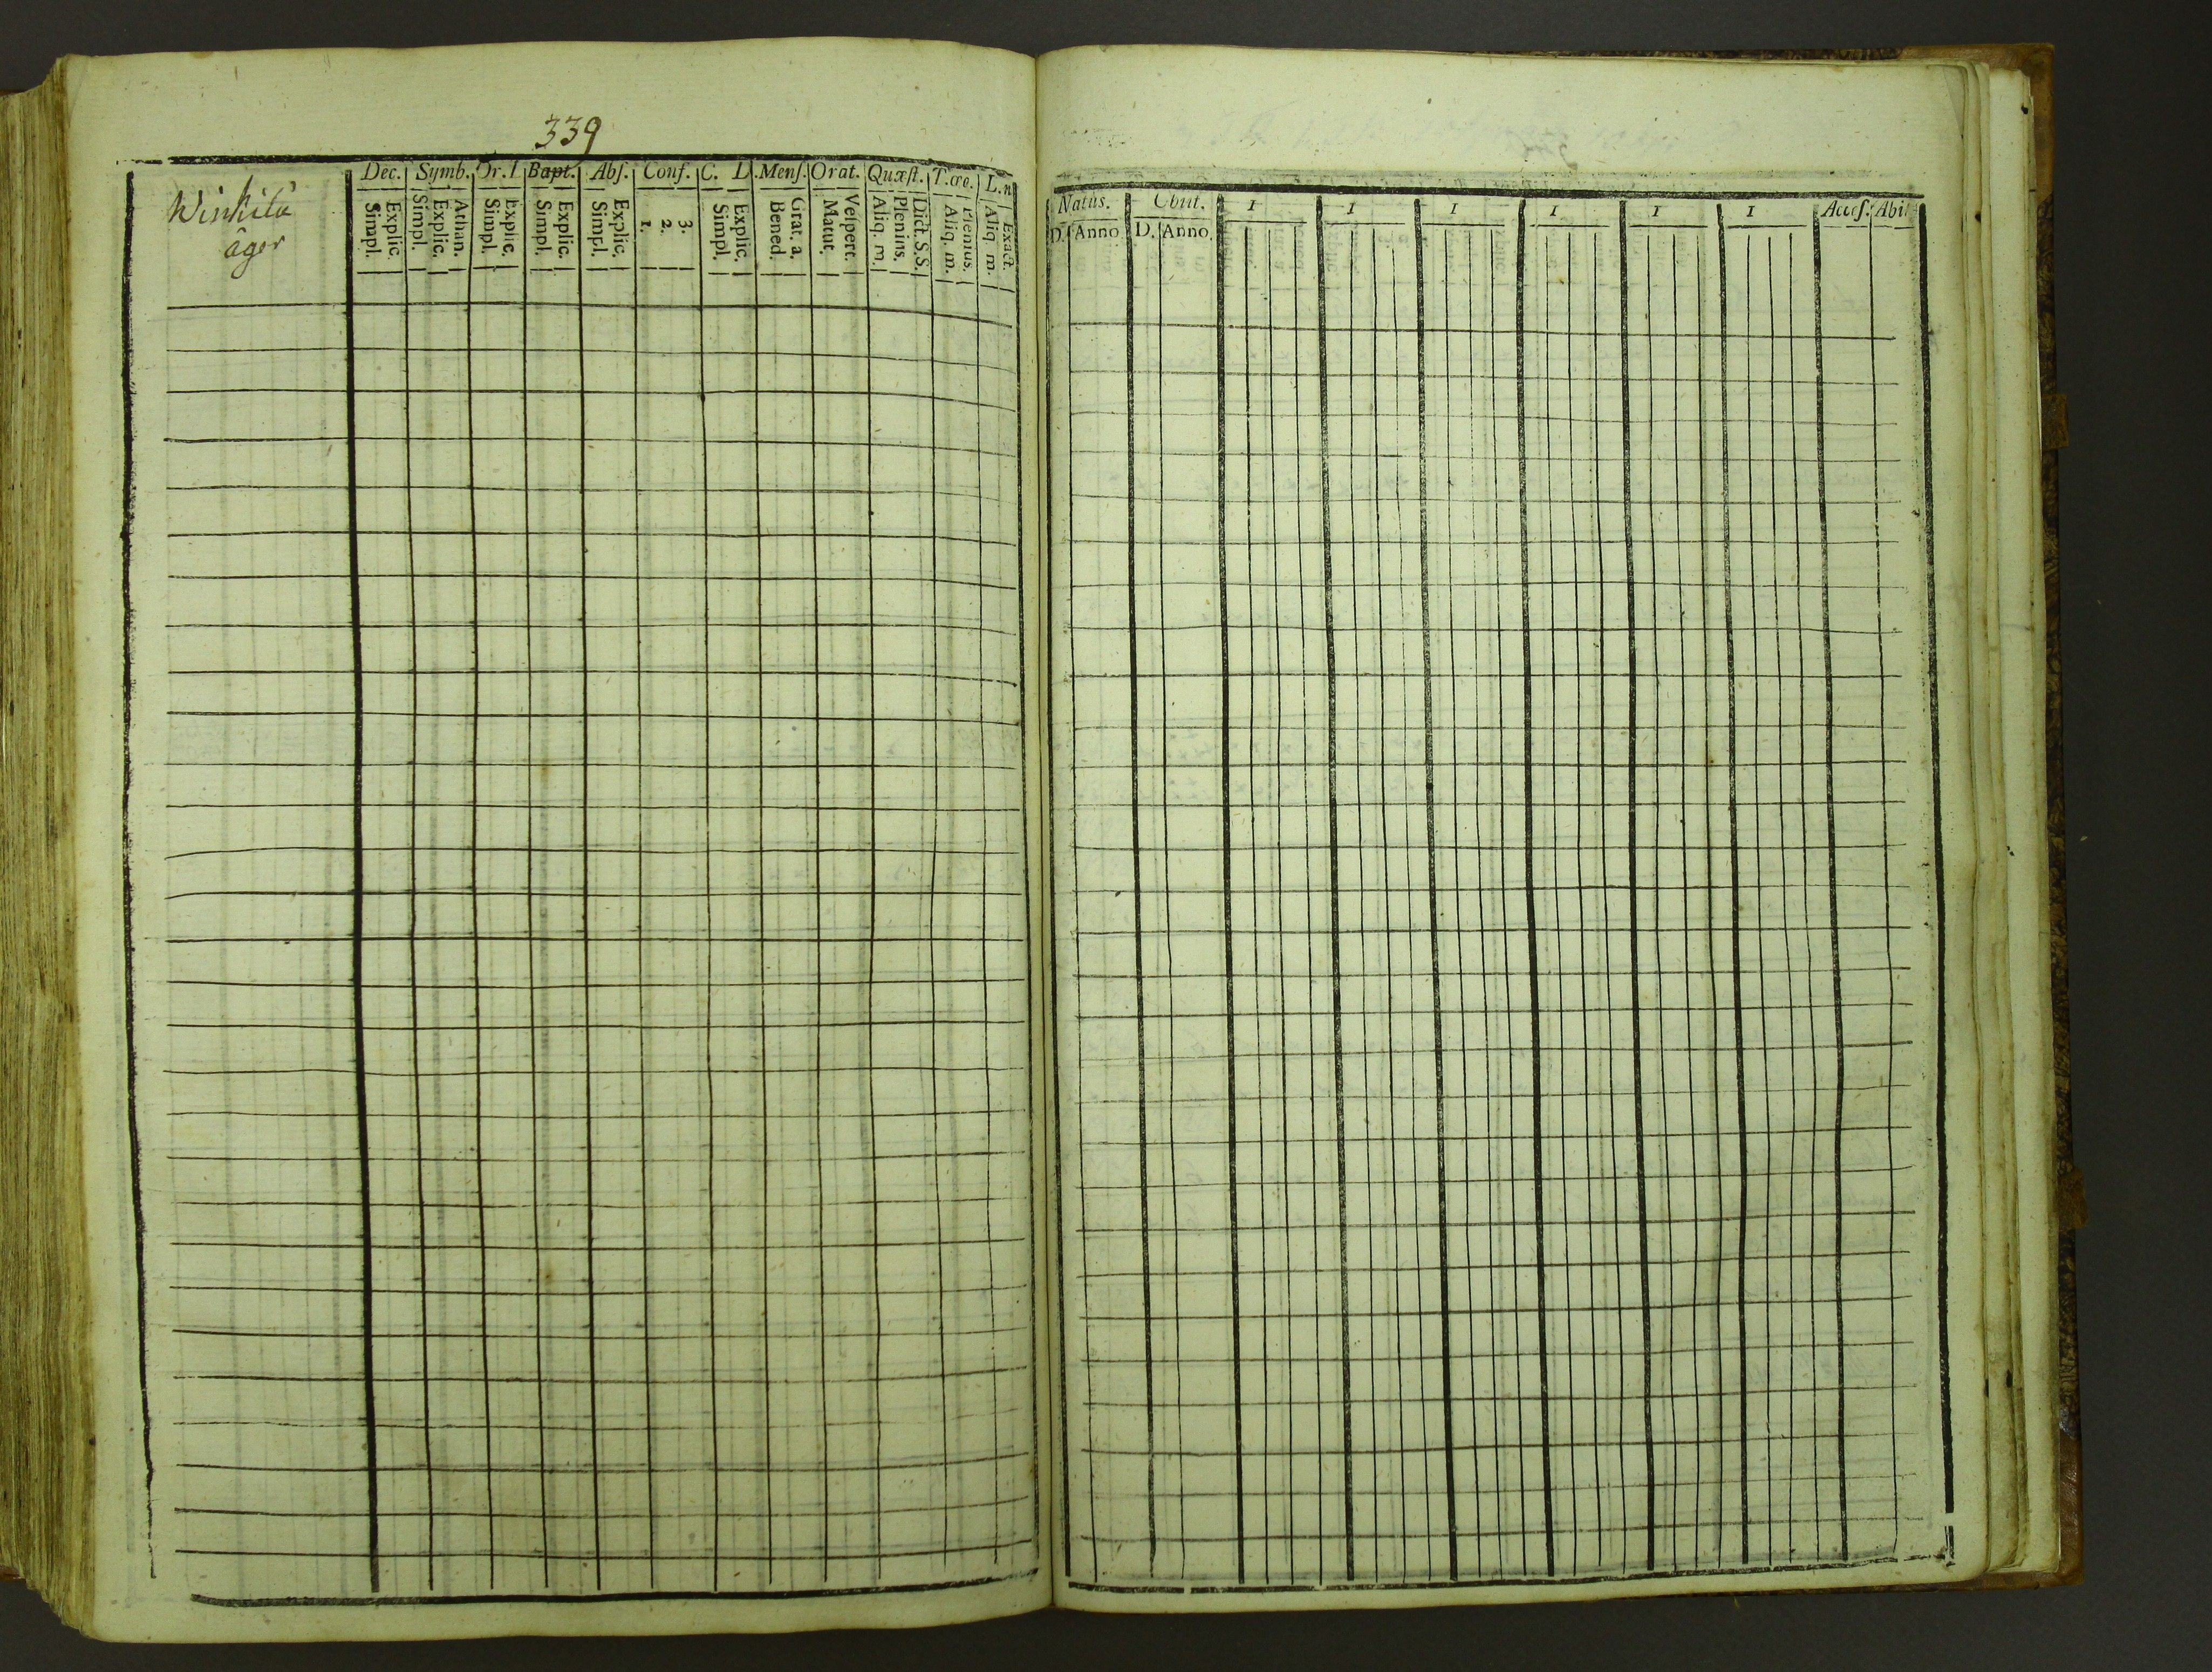 339
Winkilä
åger
Dec. Symb. Or. I Bapt. Abſ. Conf. C. D. Menſ. Orat. Quæſt. T. œe. L. n
Explic. Simpl. Athan. Explic. Simpl. Explic. Simpl. Explic. Simpl. Explic. Simpl. 3. 2. 1. Explic. Simpl. Grat. a. Bened. Veſpert. Matut. Dict. S.S. Plenius. Aliq. m. Plenius. Aliq. m. Exact. Aliq. m.
Natus. Obiit. I I I I I I Acceſ. Abiit
D. Anno D. Anno.